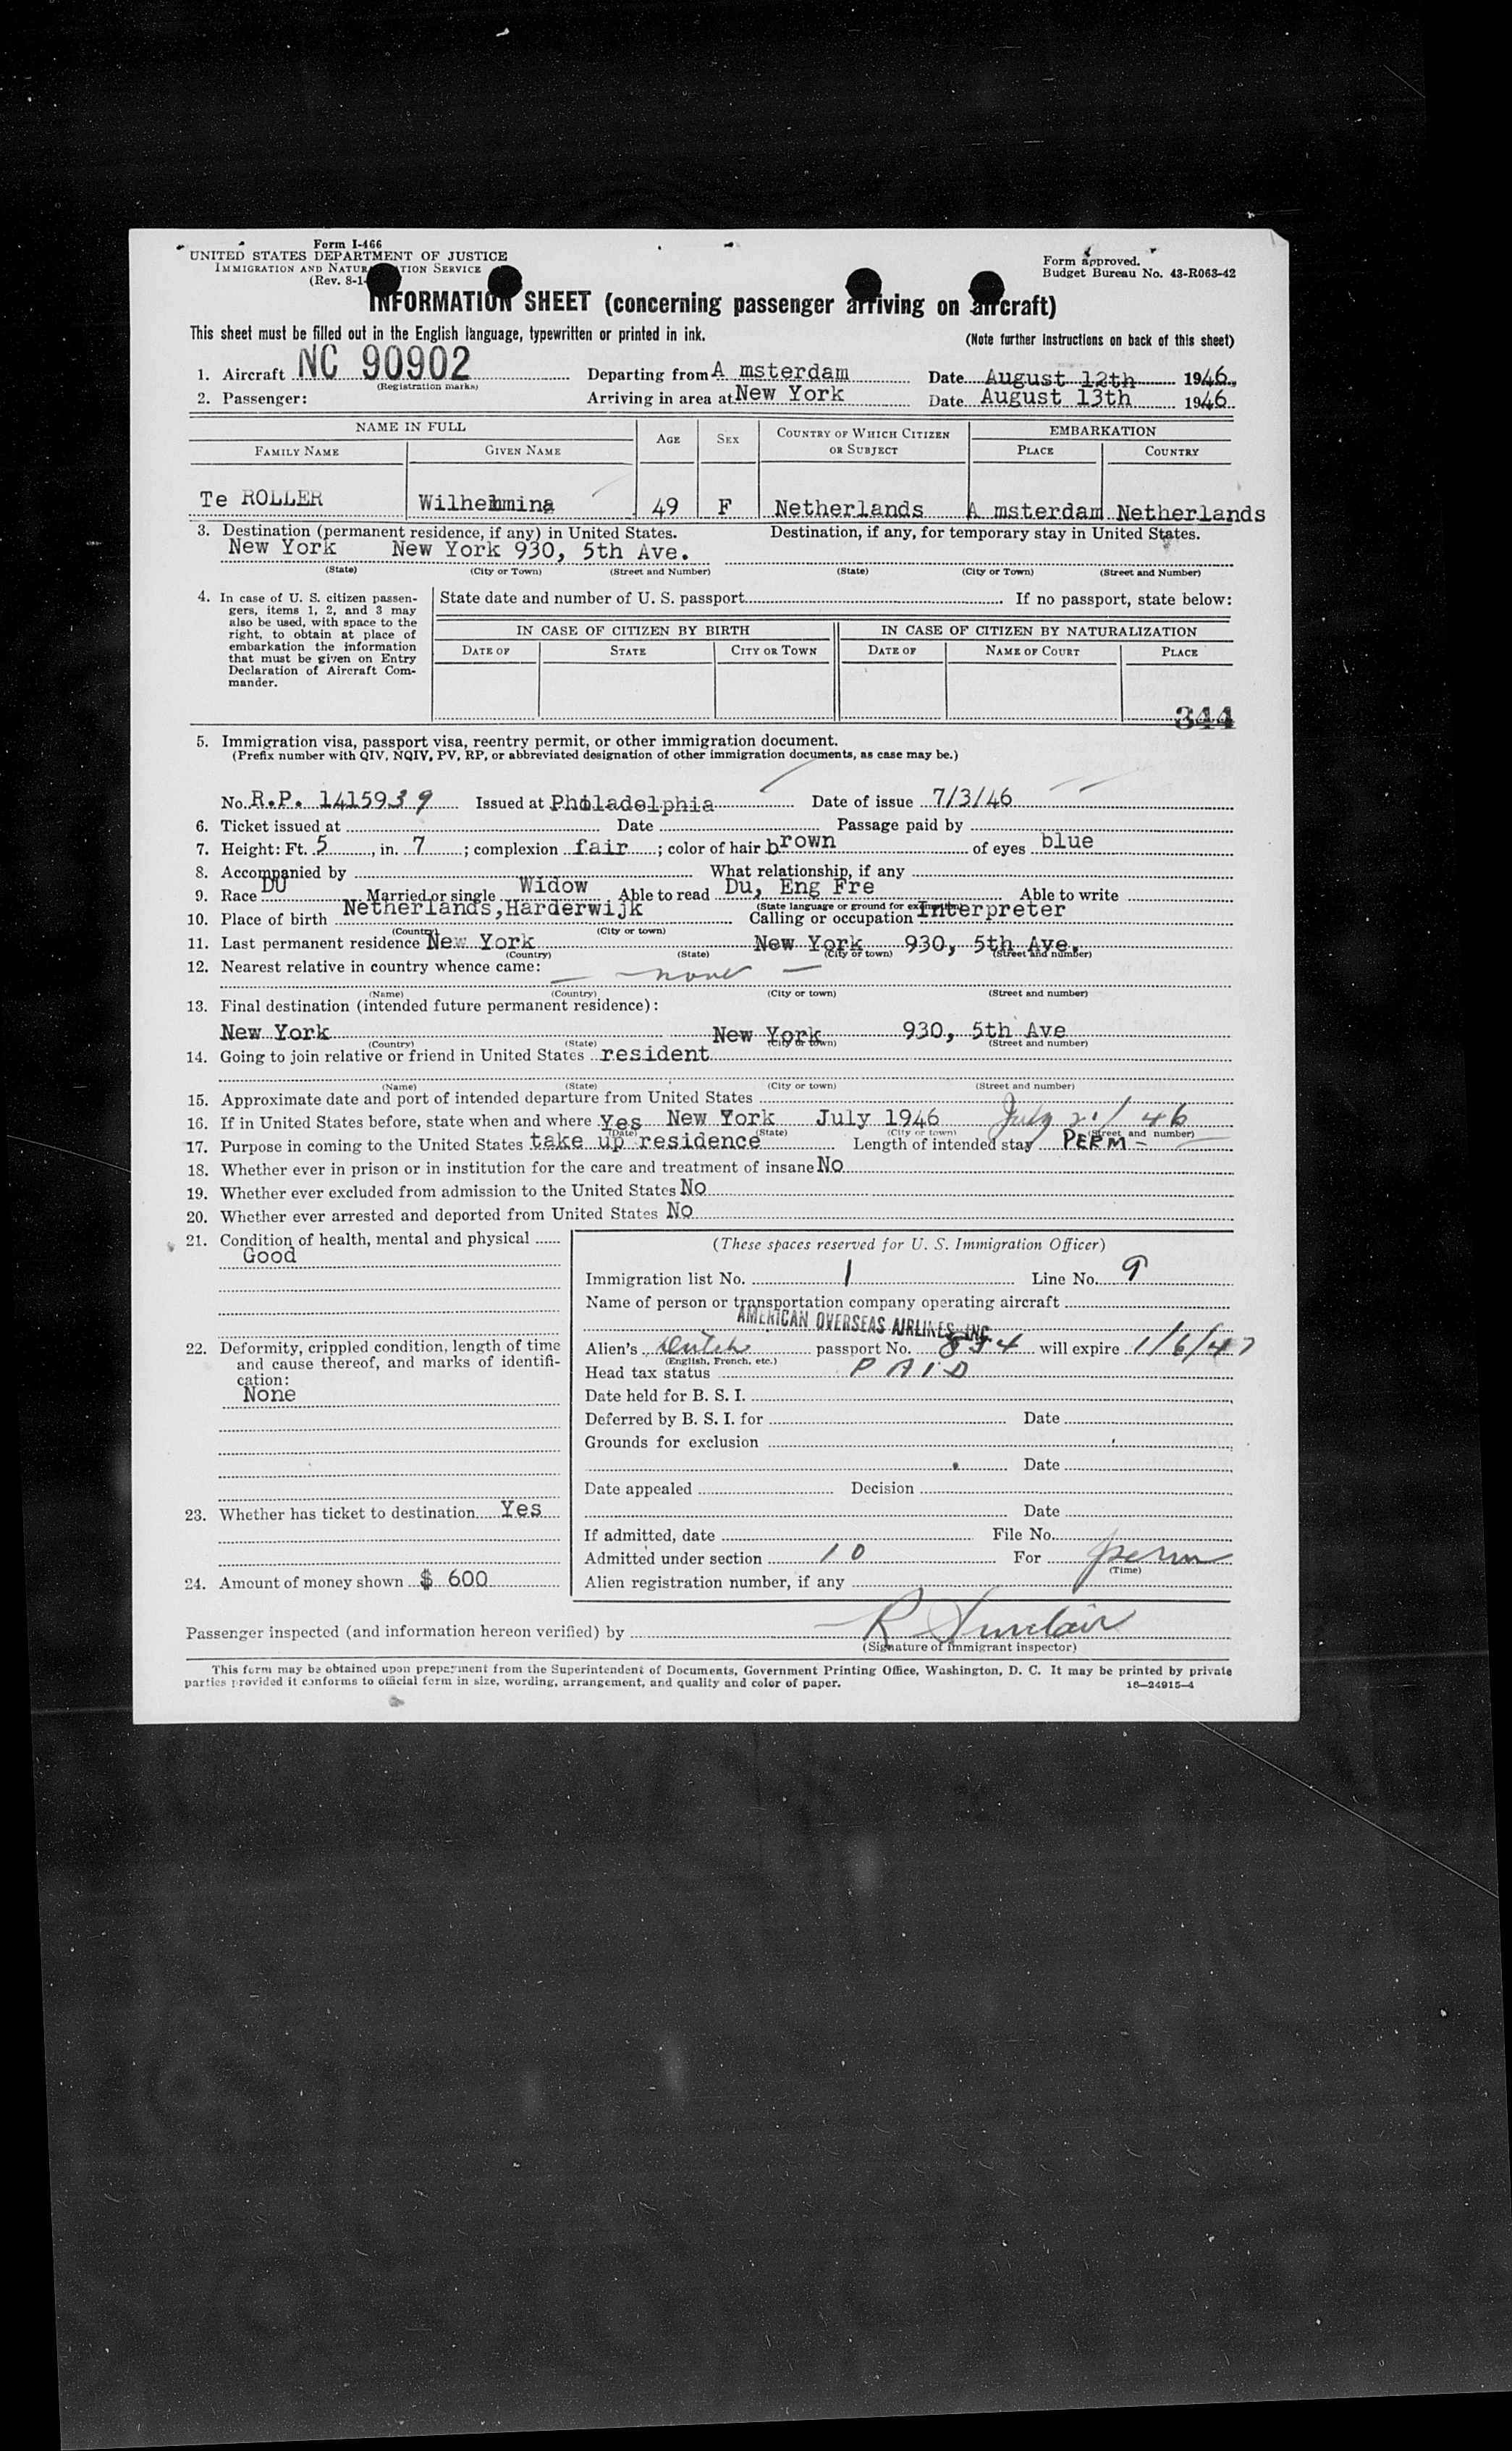 Form I-466
UNITED STATES DEPARTMENT OF JUSTICE
IMMIGRATION AND NATURALIZATION SERVICE
(Rev. 8-1-
Form approved.
Budget Bureau No. 43-R063-42
INFORMATION SHEET (concerning passenger arriving on aircraft)
This sheet must be filled out in the English language, typewritten or printed in ink.
(Note further instructions on back of this sheet)
1. Aircraft NC 90902 Departing from A msterdam Date August 12th 1946
(Registration marks)
2. Passenger: Arriving in area at New York Date August 13th 1946
NAME IN FULL AGE SEX COUNTRY OF WHICH CITIZEN OR SUBJECT EMBARKATION
FAMILY NAME GIVEN NAME PLACE COUNTRY
Te ROLLER Wilhelmina 49 F Netherlands A msterdam Netherlands
3. Destination (permanent residence, if any) in United States. Destination, if any, for temporary stay in United States.
New York New York 930, 5th Ave.
(State) (City or Town) (Street and Number) (State) (City or Town) (Street and Number)
4. In case of U. S. citizen passen-
gers, items 1, 2, and 3 may
also be used, with space to the
right, to obtain at place of
embarkation the information
that must be given on Entry
Declaration of Aircraft Com-
mander.
State date and number of U. S. passport If no passport, state below:
IN CASE OF CITIZEN BY BIRTH IN CASE OF CITIZEN BY NATURALIZATION
DATE OF STATE CITY OR TOWN DATE OF NAME OF COURT PLACE
344
5. Immigration visa, passport visa, reentry permit, or other immigration document.
(Prefix number with QIV, NQIV, PV, RP, or abbreviated designation of other immigration documents, as case may be.)
No. R.P. 1415939 Issued at Philadelphia Date of issue 7/3/46
6. Ticket issued at Date Passage paid by
7. Height: Ft. 5, in. 7; complexion fair; color of hair brown of eyes blue
8. Accompanied by What relationship, if any
9. Race DU Married or single Widow Able to read Du, Eng Fre Able to write
(State language or ground for exemption)
10. Place of birth Netherlands,Harderwijk Calling or occupation Interpreter
(Country) (City or town)
11. Last permanent residence New York New York 930, 5th Ave.
(Country) (State) (City or town) (Street and number)
12. Nearest relative in country whence came: — none —
(Name) (Country) (City or town) (Street and number)
13. Final destination (intended future permanent residence):
New York New York 930, 5th Ave
(Country) (State) (City or town) (Street and number)
14. Going to join relative or friend in United States resident
(Name) (State) (City or town) (Street and number)
15. Approximate date and port of intended departure from United States
16. If in United States before, state when and where Yes New York July 1946 July 46
(Date) (State) (City or town) (Street and number)
17. Purpose in coming to the United States take up residence Length of intended stay PERM-
18. Whether ever in prison or in institution for the care and treatment of insane No
19. Whether ever excluded from admission to the United States No
20. Whether ever arrested and deported from United States No
21. Condition of health, mental and physical
Good
22. Deformity, crippled condition, length of time
and cause thereof, and marks of identifi-
cation:
None
23. Whether has ticket to destination Yes
24. Amount of money shown $ 600
(These spaces reserved for U. S. Immigration Officer)
Immigration list No. 1 Line No. 9
Name of person or transportation company operating aircraft
AMERICAN OVERSEAS AIRLINES, INC.
Alien's Dutch passport No. 834 will expire 1/6/47
(English, French, etc.)
Head tax status PAID
Date held for B. S. I.
Deferred by B. S. I. for Date
Grounds for exclusion
Date
Date appealed Decision
Date
If admitted, date File No.
Admitted under section 10 For perm
(Time)
Alien registration number, if any
Passenger inspected (and information hereon verified) by R Sinclair
(Signature of immigrant inspector)
This form may be obtained upon prepayment from the Superintendent of Documents, Government Printing Office, Washington, D. C. It may be printed by private
parties provided it conforms to official form in size, wording, arrangement, and quality and color of paper. 16—24915-4